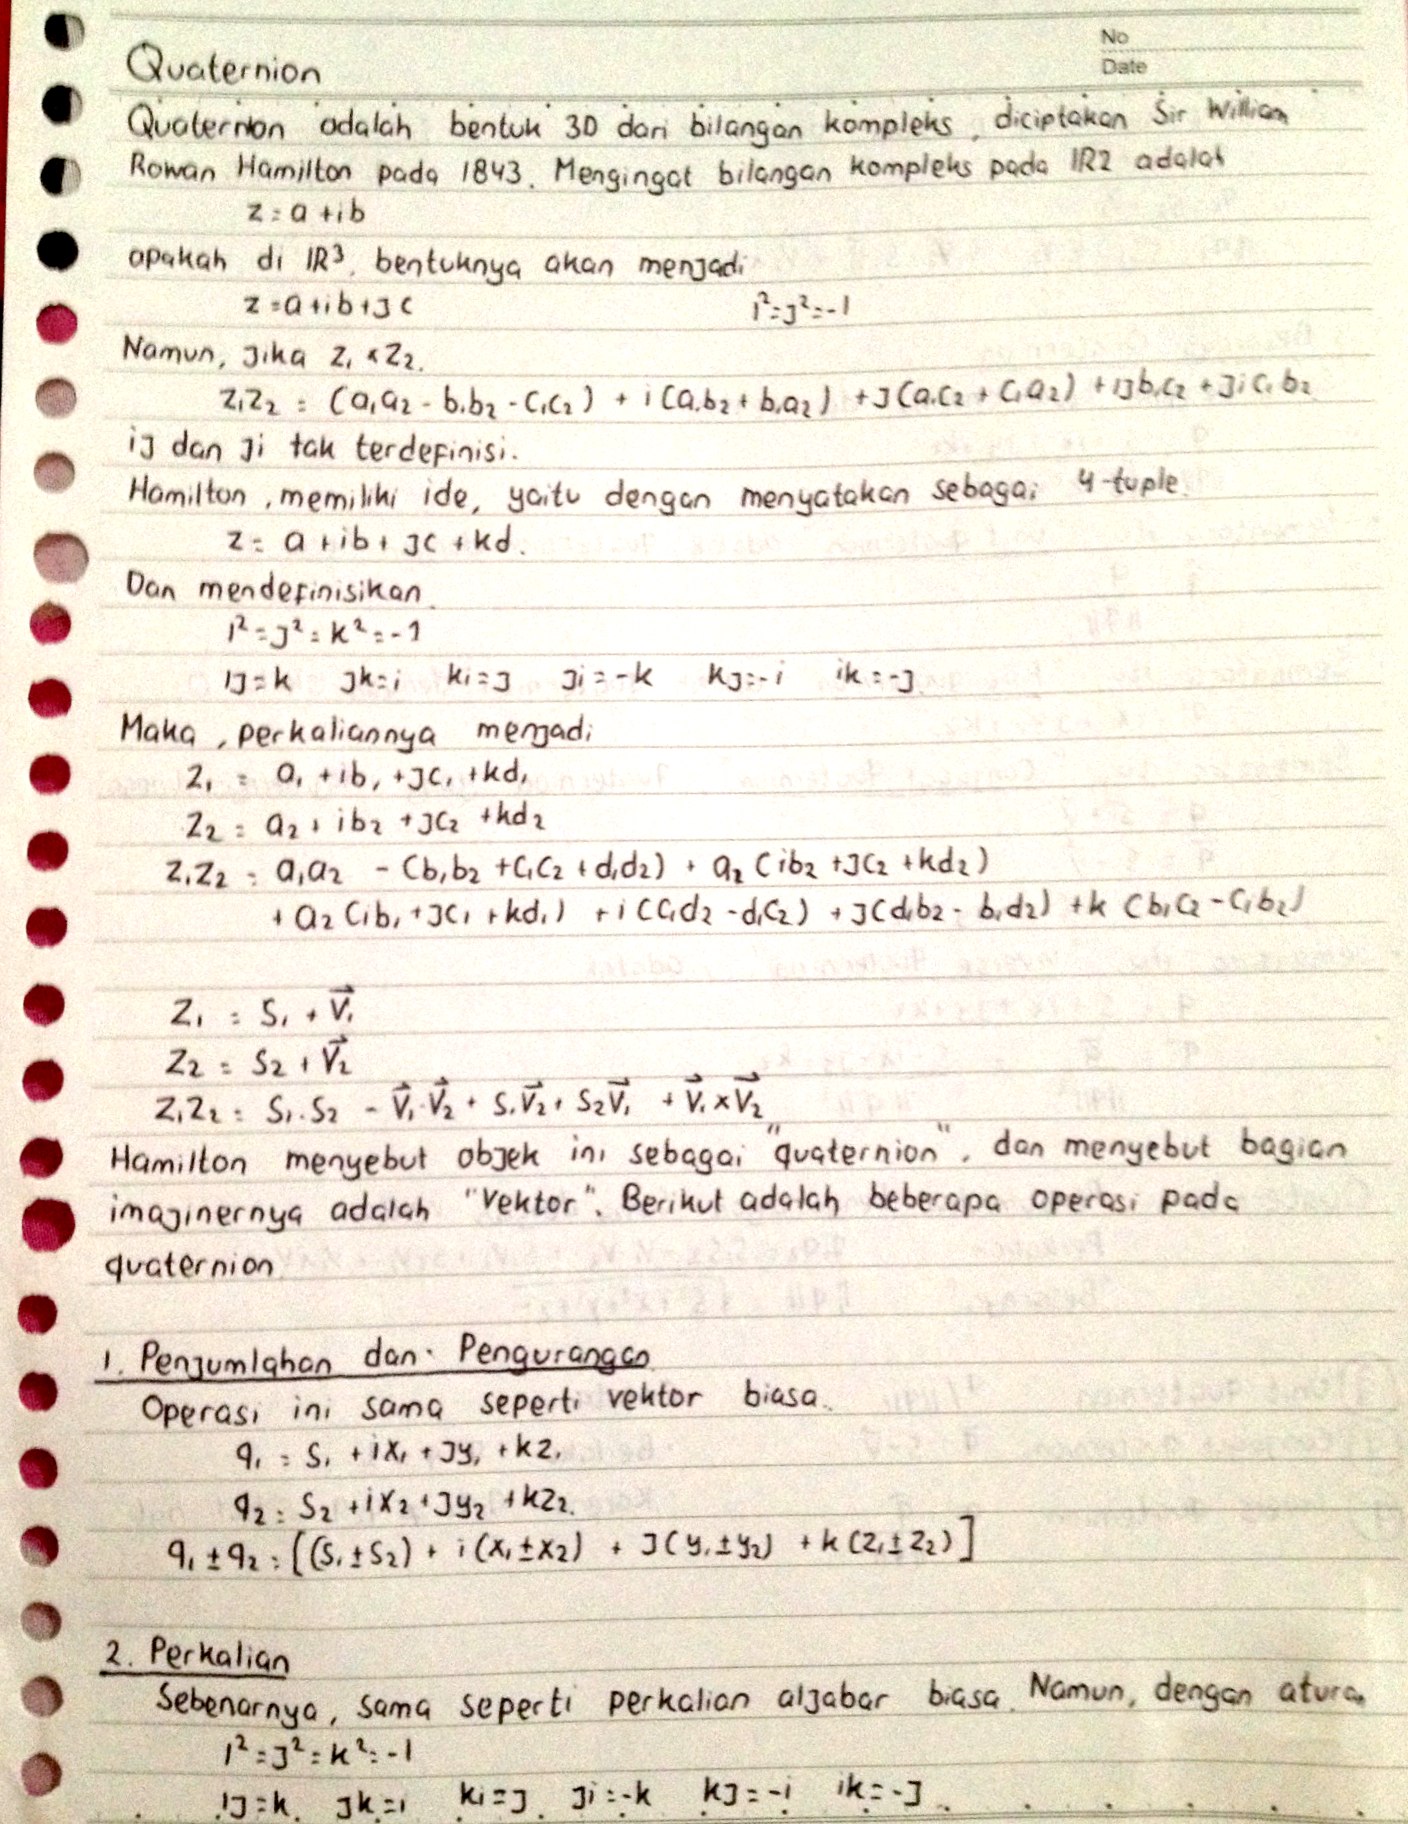 No
Date
Quaternion
Quaternion adalah bentuk 3D dari bilangan kompleks, diciptakan Sir William
Rowan Hamilton pada 1843. Mengingat bilangan kompleks pada IR2 adalah
z = a + ib
apakah di IR³, bentuknya akan menjadi
z = a + ib + jc i² = j² = -1
Namun, jika z₁ × z₂.
z₁z₂ = (a₁a₂ - b₁b₂ - c₁c₂) + i(a₁b₂ + b₁a₂) + j(a₁c₂ + c₁a₂) + ijb₁c₂ + jic₁b₂
ij dan ji tak terdefinisi.
Hamilton, memiliki ide, yaitu dengan menyatakan sebagai 4-tuple.
z = a + ib + jc + kd.
Dan mendefinisikan.
i² = j² = k² = -1
ij = k jk = i ki = j ji = -k kj = -i ik = -j
Maka, perkaliannya menjadi
z₁ = a₁ + ib₁ + jc₁ + kd₁
z₂ = a₂ + ib₂ + jc₂ + kd₂
z₁z₂ = a₁a₂ - (b₁b₂ + c₁c₂ + d₁d₂) + a₂(ib₂ + jc₂ + kd₂)
+ a₂(ib₁ + jc₁ + kd₁) + i(c₁d₂ - d₁c₂) + j(d₁b₂ - b₁d₂) + k(b₁c₂ - c₁b₂)
z₁ = s₁ + v⃗₁
z₂ = s₂ + v⃗₂
z₁z₂ = s₁.s₂ - v⃗₁.v⃗₂ + s₁v⃗₂ + s₂v⃗₁ + v⃗₁ × v⃗₂
Hamilton menyebut objek ini sebagai "quaternion", dan menyebut bagian
imajinernya adalah "Vektor". Berikut adalah beberapa operasi pada
quaternion.
1. Penjumlahan dan Pengurangan
Operasi ini sama seperti vektor biasa.
q₁ = s₁ + ix₁ + jy₁ + kz₁
q₂ = s₂ + ix₂ + jy₂ + kz₂.
q₁ ± q₂ = [(s₁ ± s₂) + i(x₁ ± x₂) + j(y₁ ± y₂) + k(z₁ ± z₂)]
2. Perkalian
Sebenarnya, sama seperti perkalian aljabar biasa. Namun, dengan aturan
i² = j² = k² = -1
ij = k jk = i ki = j ji = -k kj = -i ik = -j